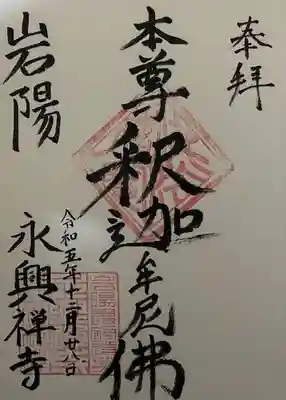 奉拝
本尊釈迦牟尼佛
令和五年十二月廿八日
岩陽 永興禅寺